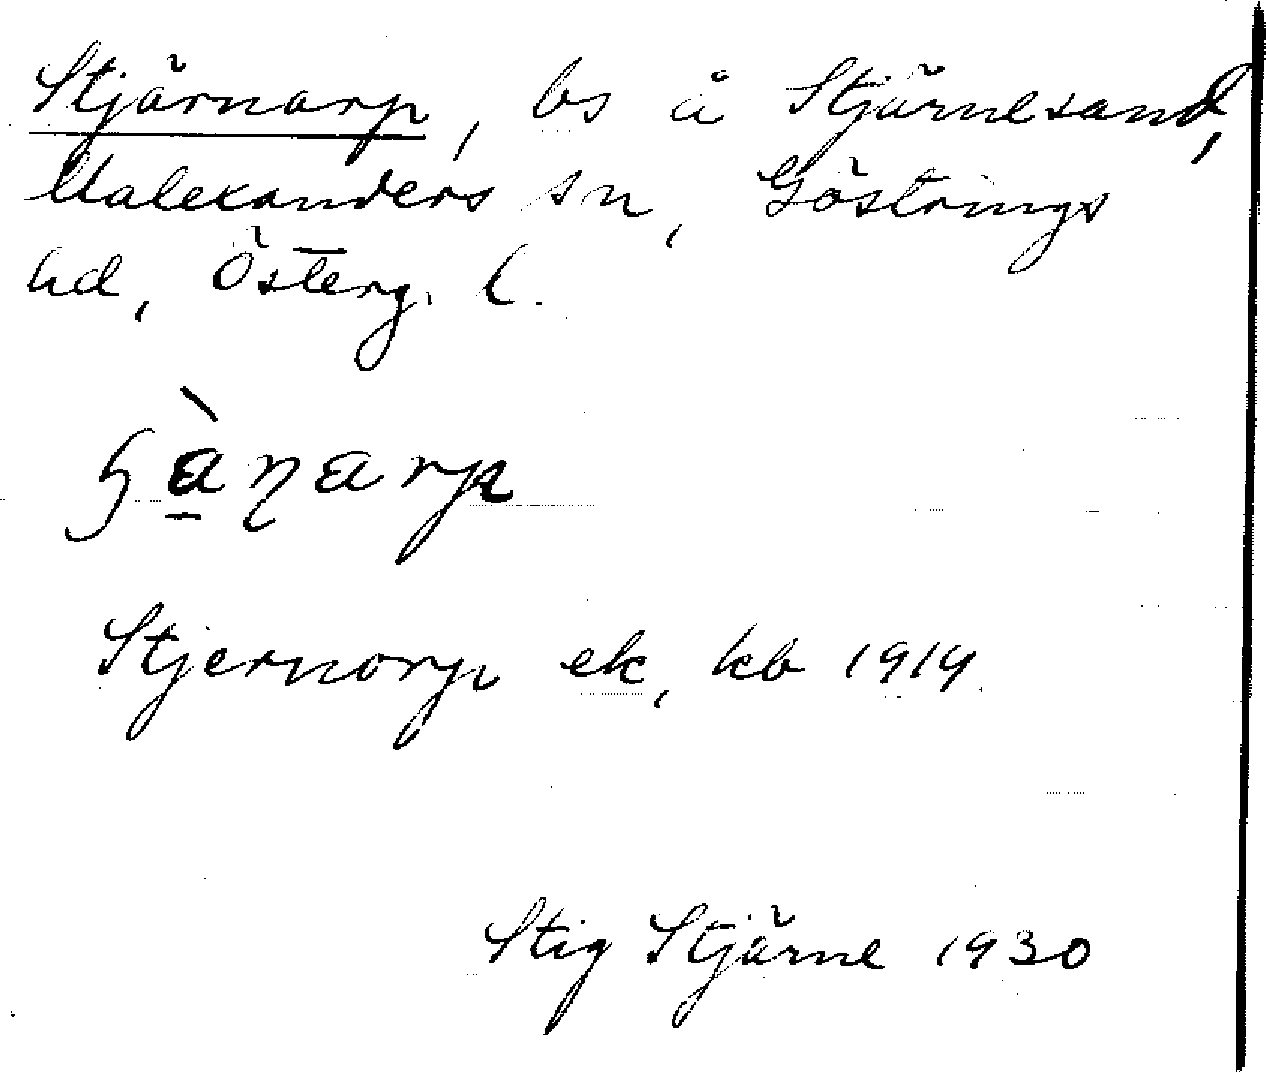 Stjärnarp, bs å Stjärnesand,
Malexanders sn, Göstrings
hd, Österg. l.
Stjernorp ek, kb 1919.
Stig Stjärne 1930